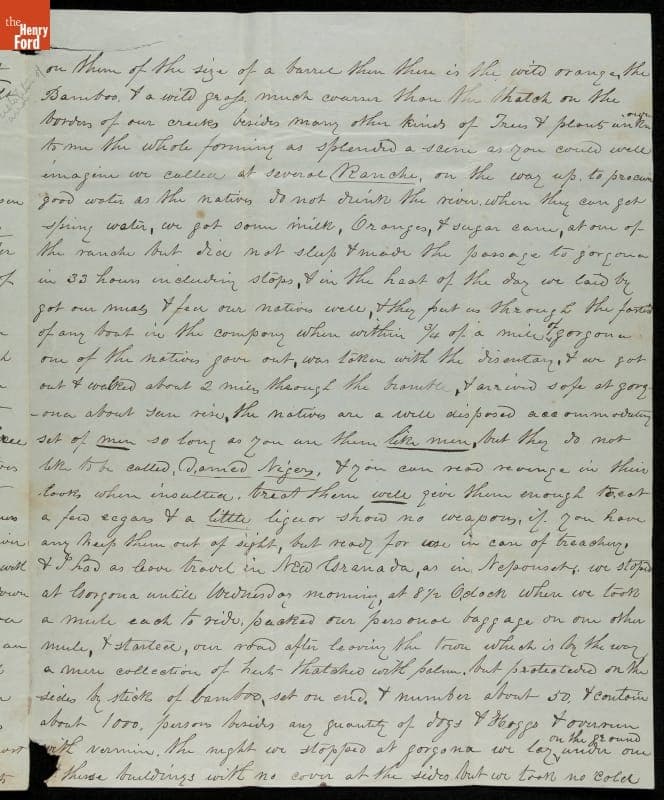 the
Henry
Ford
on them of the size of a barrel then there is the wild orange, the
Bamboo, & a wild grass, much coarser than the thatch on the
borders of our creeks besides many other kinds of Trees & plants unknown
to me the whole forming as splended a scene as you could well
imagine we called at several Ranche, on the way up. to procure
good water as the natives do not drink the river when they can get
spring water, we got some milk, Oranges, & sugar cane, at one of
the ranche but did not sleep & made the passage to gorgona
in 33 hours including stops, & in the heat of the day we laid by
got our meals & fed our natives well, & they put us through the fastest
of any boat in the company when within 3/4 of a mile of gorgona
one of the natives gave out, was taken with the disentary, & we got
out & walked about 2 miles through the bramble, & arrived safe at gorg-
-ona about sun rise, the natives are a well disposed accommodating
set of men so long as you use them like men, but they do not
like to be called, Damed Nigers, & you can read revenge in their
looks when insulted, treat them well give them enough to eat
a few segars & a little liquor show no weapons, if you have
any keep them out of sight, but ready for use in case of treachery,
& I had as leave travel in New Granada, as in Neponset; we stoped
at Gorgona untill Wednesday morning, at 8 1/2 Oclock when we took
a mule each to ride, packed our personal baggage on one other
mule, & started, our road after leaving the town which is by the way
a mere collection of huts thatched with palm. but protecteded on the
sides by sticks of bamboo, set on end, & number about 50, & contain
about 1000. persons besides any quantity of dogs & Hoggs & overrun
with vermin, the night we stopped at gorgona we lay on the ground under one
of these buildings with no cover at the sides but we took no cold